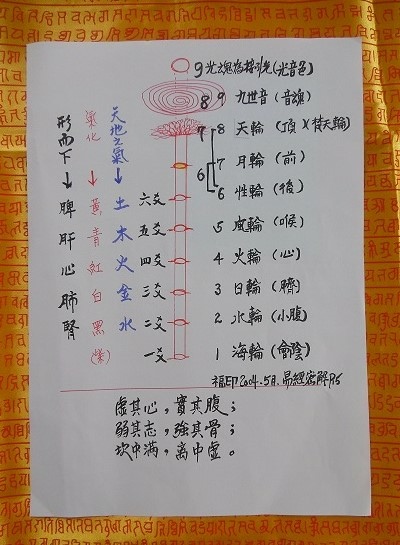 9光魂為接引光(光音色)
8 9 九世音 (音魂)
7 8 天輪 (頂)(梵天輪)
7 月輪 (前)
6
6 性輪 (後)
5 風輪 (喉)
4 火輪 (心)
3 日輪 (臍)
2 水輪 (小腹)
1 海輪 (會陰)
六爻
五爻
四爻
三爻
二爻
一爻
天地之氣→土木火金水
氣化→黃青紅白黑(紫)
形而下→脾肝心肺腎
福印2004.5月.易經密解P6
虛其心,實其腹;
弱其志,強其骨;
坎中滿,離中虛。